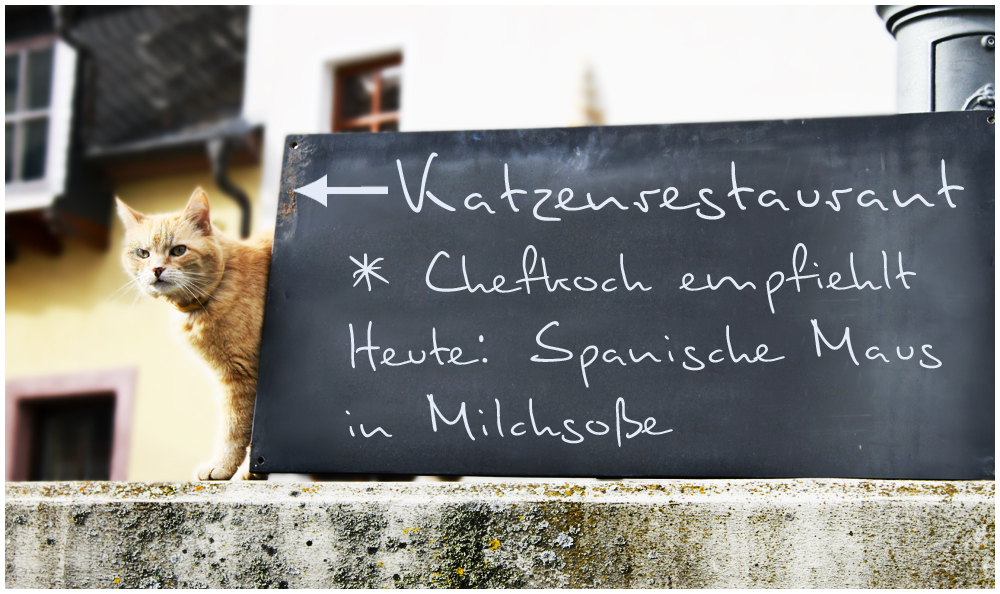 ← Katzenrestaurant
* Chefkoch empfiehlt
Heute: Spanische Maus
in Milchsoße